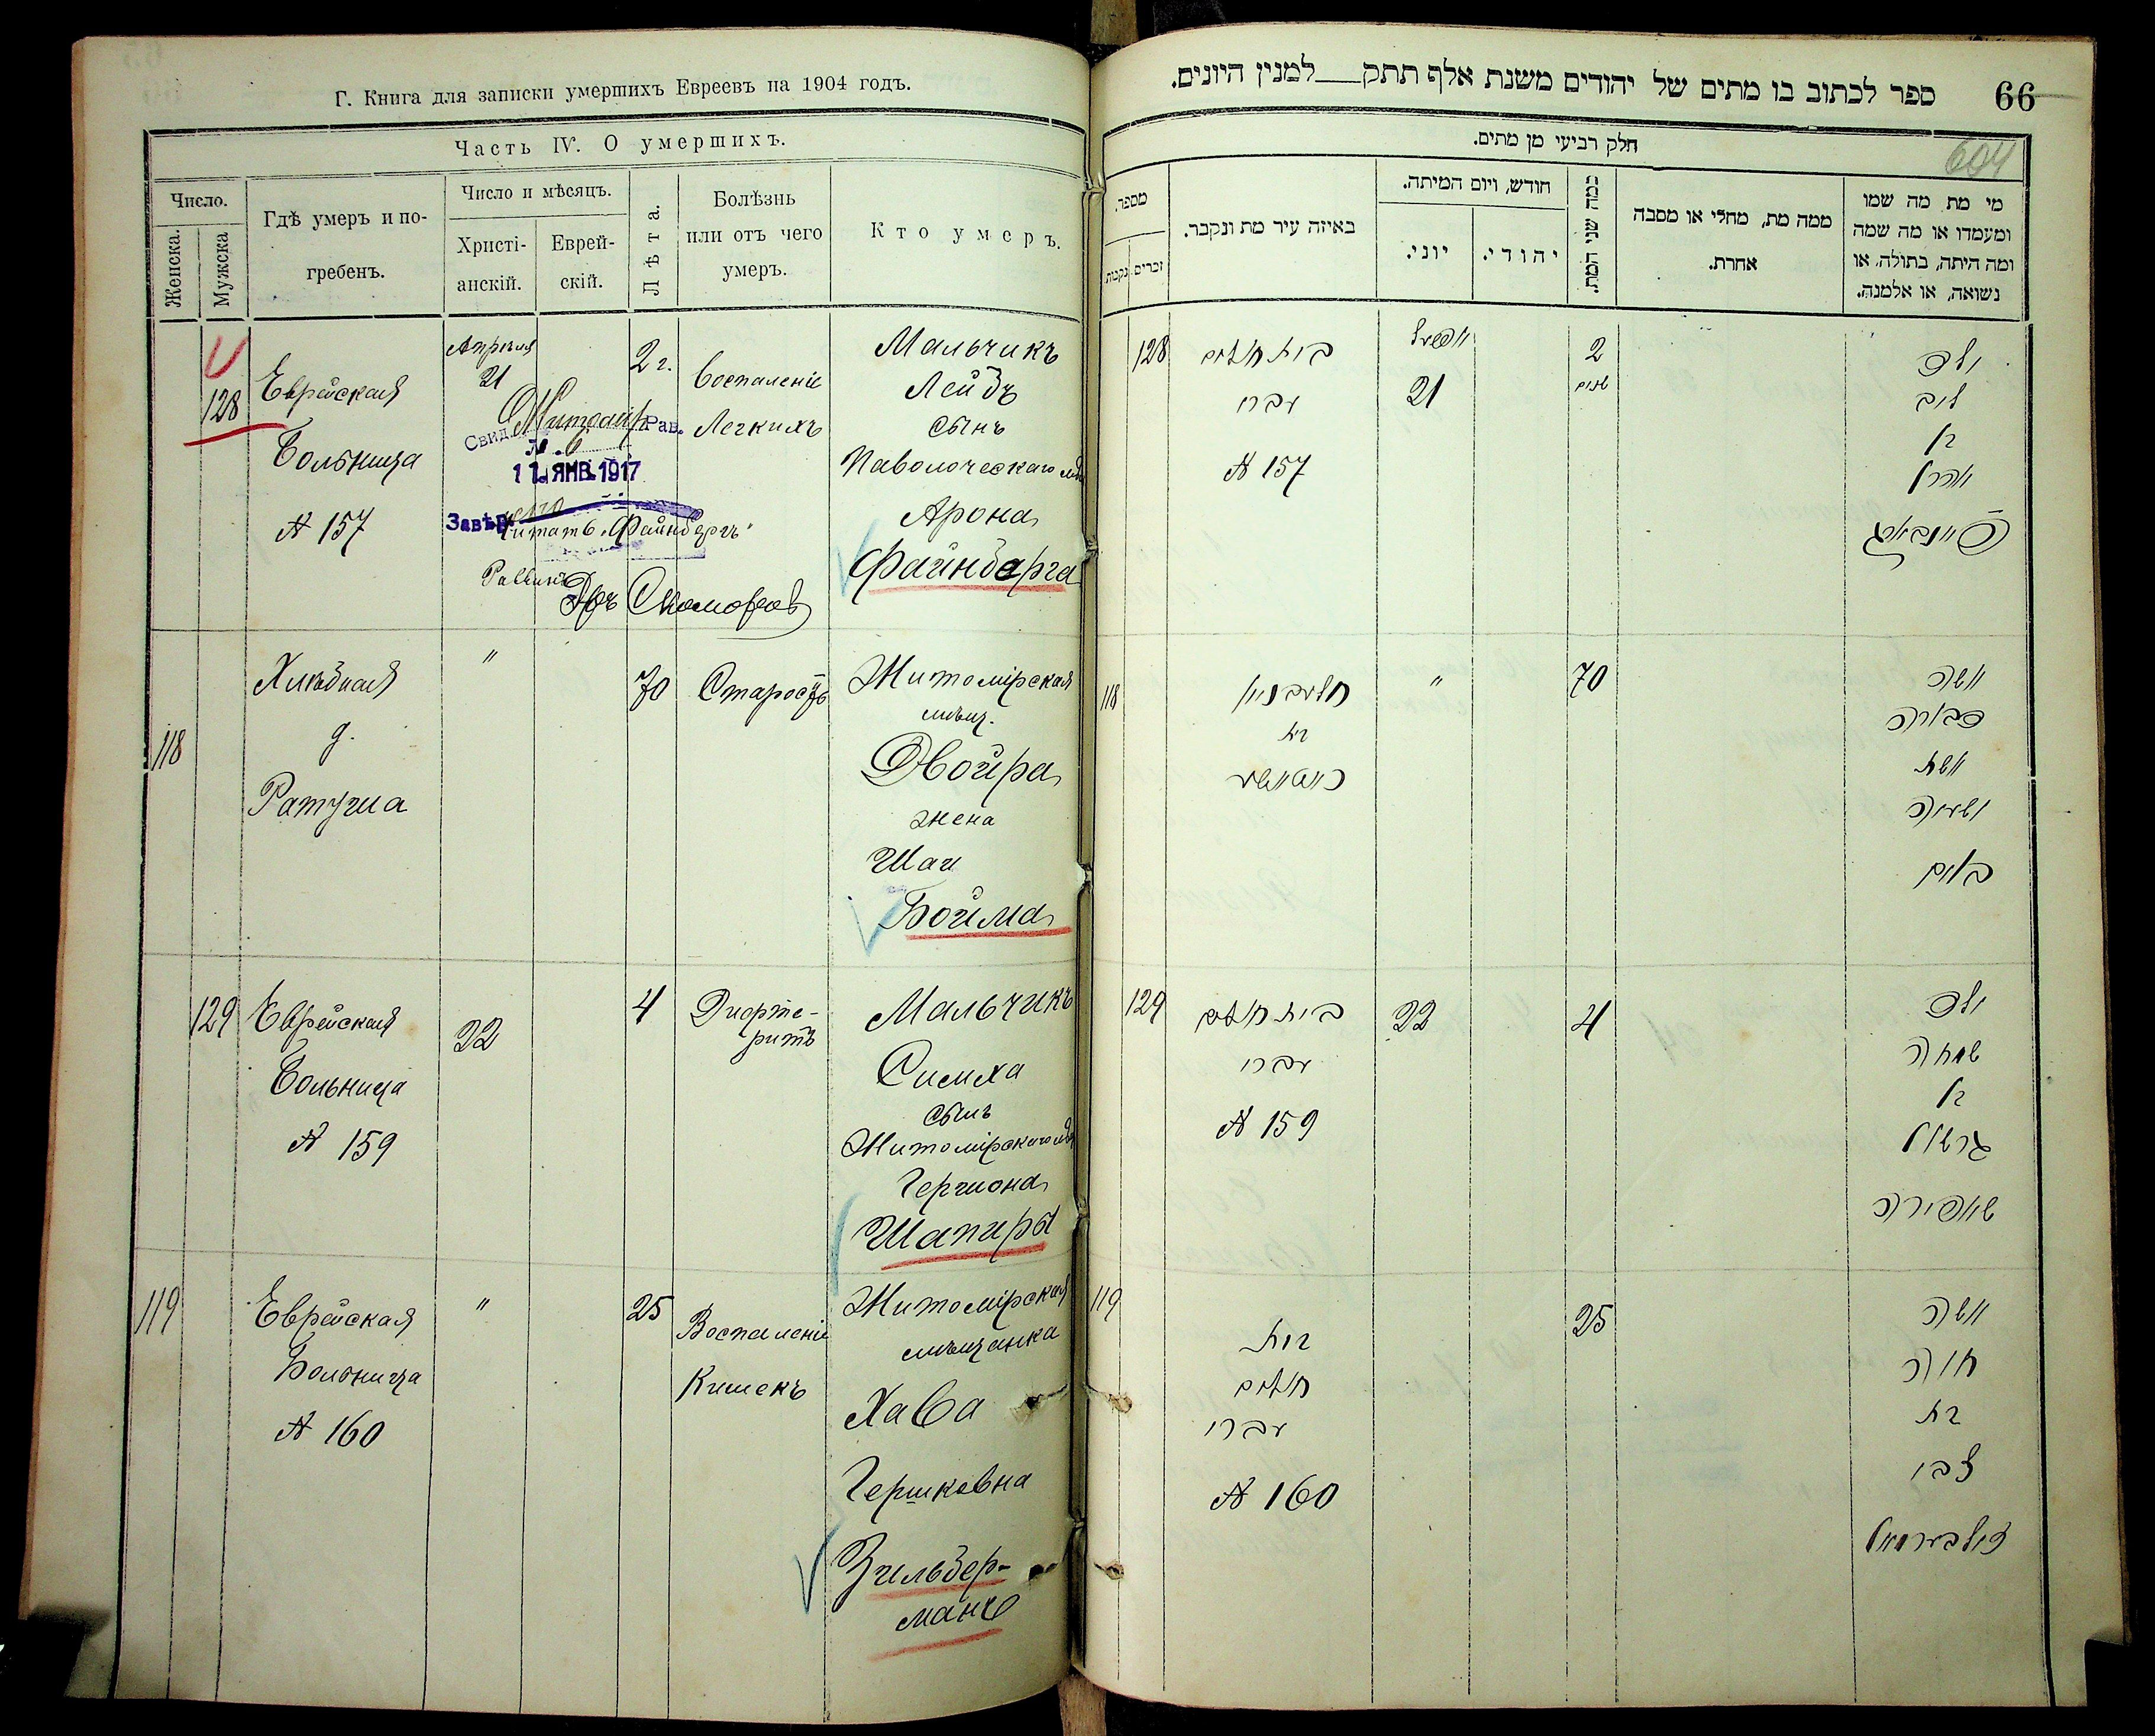 Г. Книга для записки умершихъ Евреевъ на 1904 годъ.
Часть IV. О умершихъ.
Число.
Женска.
Мужска
Гдѣ умеръ и по-
гребенъ.
Число и мѣсяцъ.
Христі-
анскій.
Еврей-
скій.
Лѣта.
Болѣзнь
или отъ чего
умеръ.
Кто умеръ.
128
Еврейская
Больница
№ 157
Апрѣля
21
2 г.
Воспаленіе
Легкихъ
Мальчикъ
Лейбъ
сынъ
Паволочскаго
Арона
Файнберга
Свид.
Рав.
11 ЯНВ. 1917
Завѣр.
Читать „Файнбергъ"
Раввинъ
118
Хлѣбная
д.
Ратуша
"
70
Старость
Житомірская
мѣщ.
Двойра
жена
Шаи
Бойма
129
Еврейская
Больница
№ 159
22
4
Дифте-
ритъ
Мальчикъ
Симха
сынъ
Житомірскаго
Гершона
Шапиры
119
Еврейская
Больница
№ 160
"
25
Воспаленіе
Кишекъ
Житомірская
мѣщанка
Хава
Гершковна
Зильбер-
манъ
66
ספר לכתוב בו מתים של יהודים משנת אלף תתק__למנין היונים.
604
חלק רביעי מן מתים.
מספר.
נקבות
זכרים
באיזה עיר מת ונקבר.
חודש, ויום המיתה.
יוני.
יהודי.
כמה שני המת.
ממה מת, מחלי או מסבה
אחרת.
מי מת מה שמו
ומעמדו או מה שמה
ומה היתה, בתולה, או
נשואה, או אלמנה.
128
בית חולים
עברי
№ 157
אפריל
21
2
שנים
ילד
ליב
בן
אהרן
פיינבערג
118
בית
"
70
אשה
דבורה
אשת
ישעיה
בוים
129
בית חולים
עברי
№ 159
22
4
ילד
שמחה
בן
גרשון
שאפירה
119
בית
חולים
עברי
№ 160
25
אשה
חוה
בת
צבי
זילבערמאן